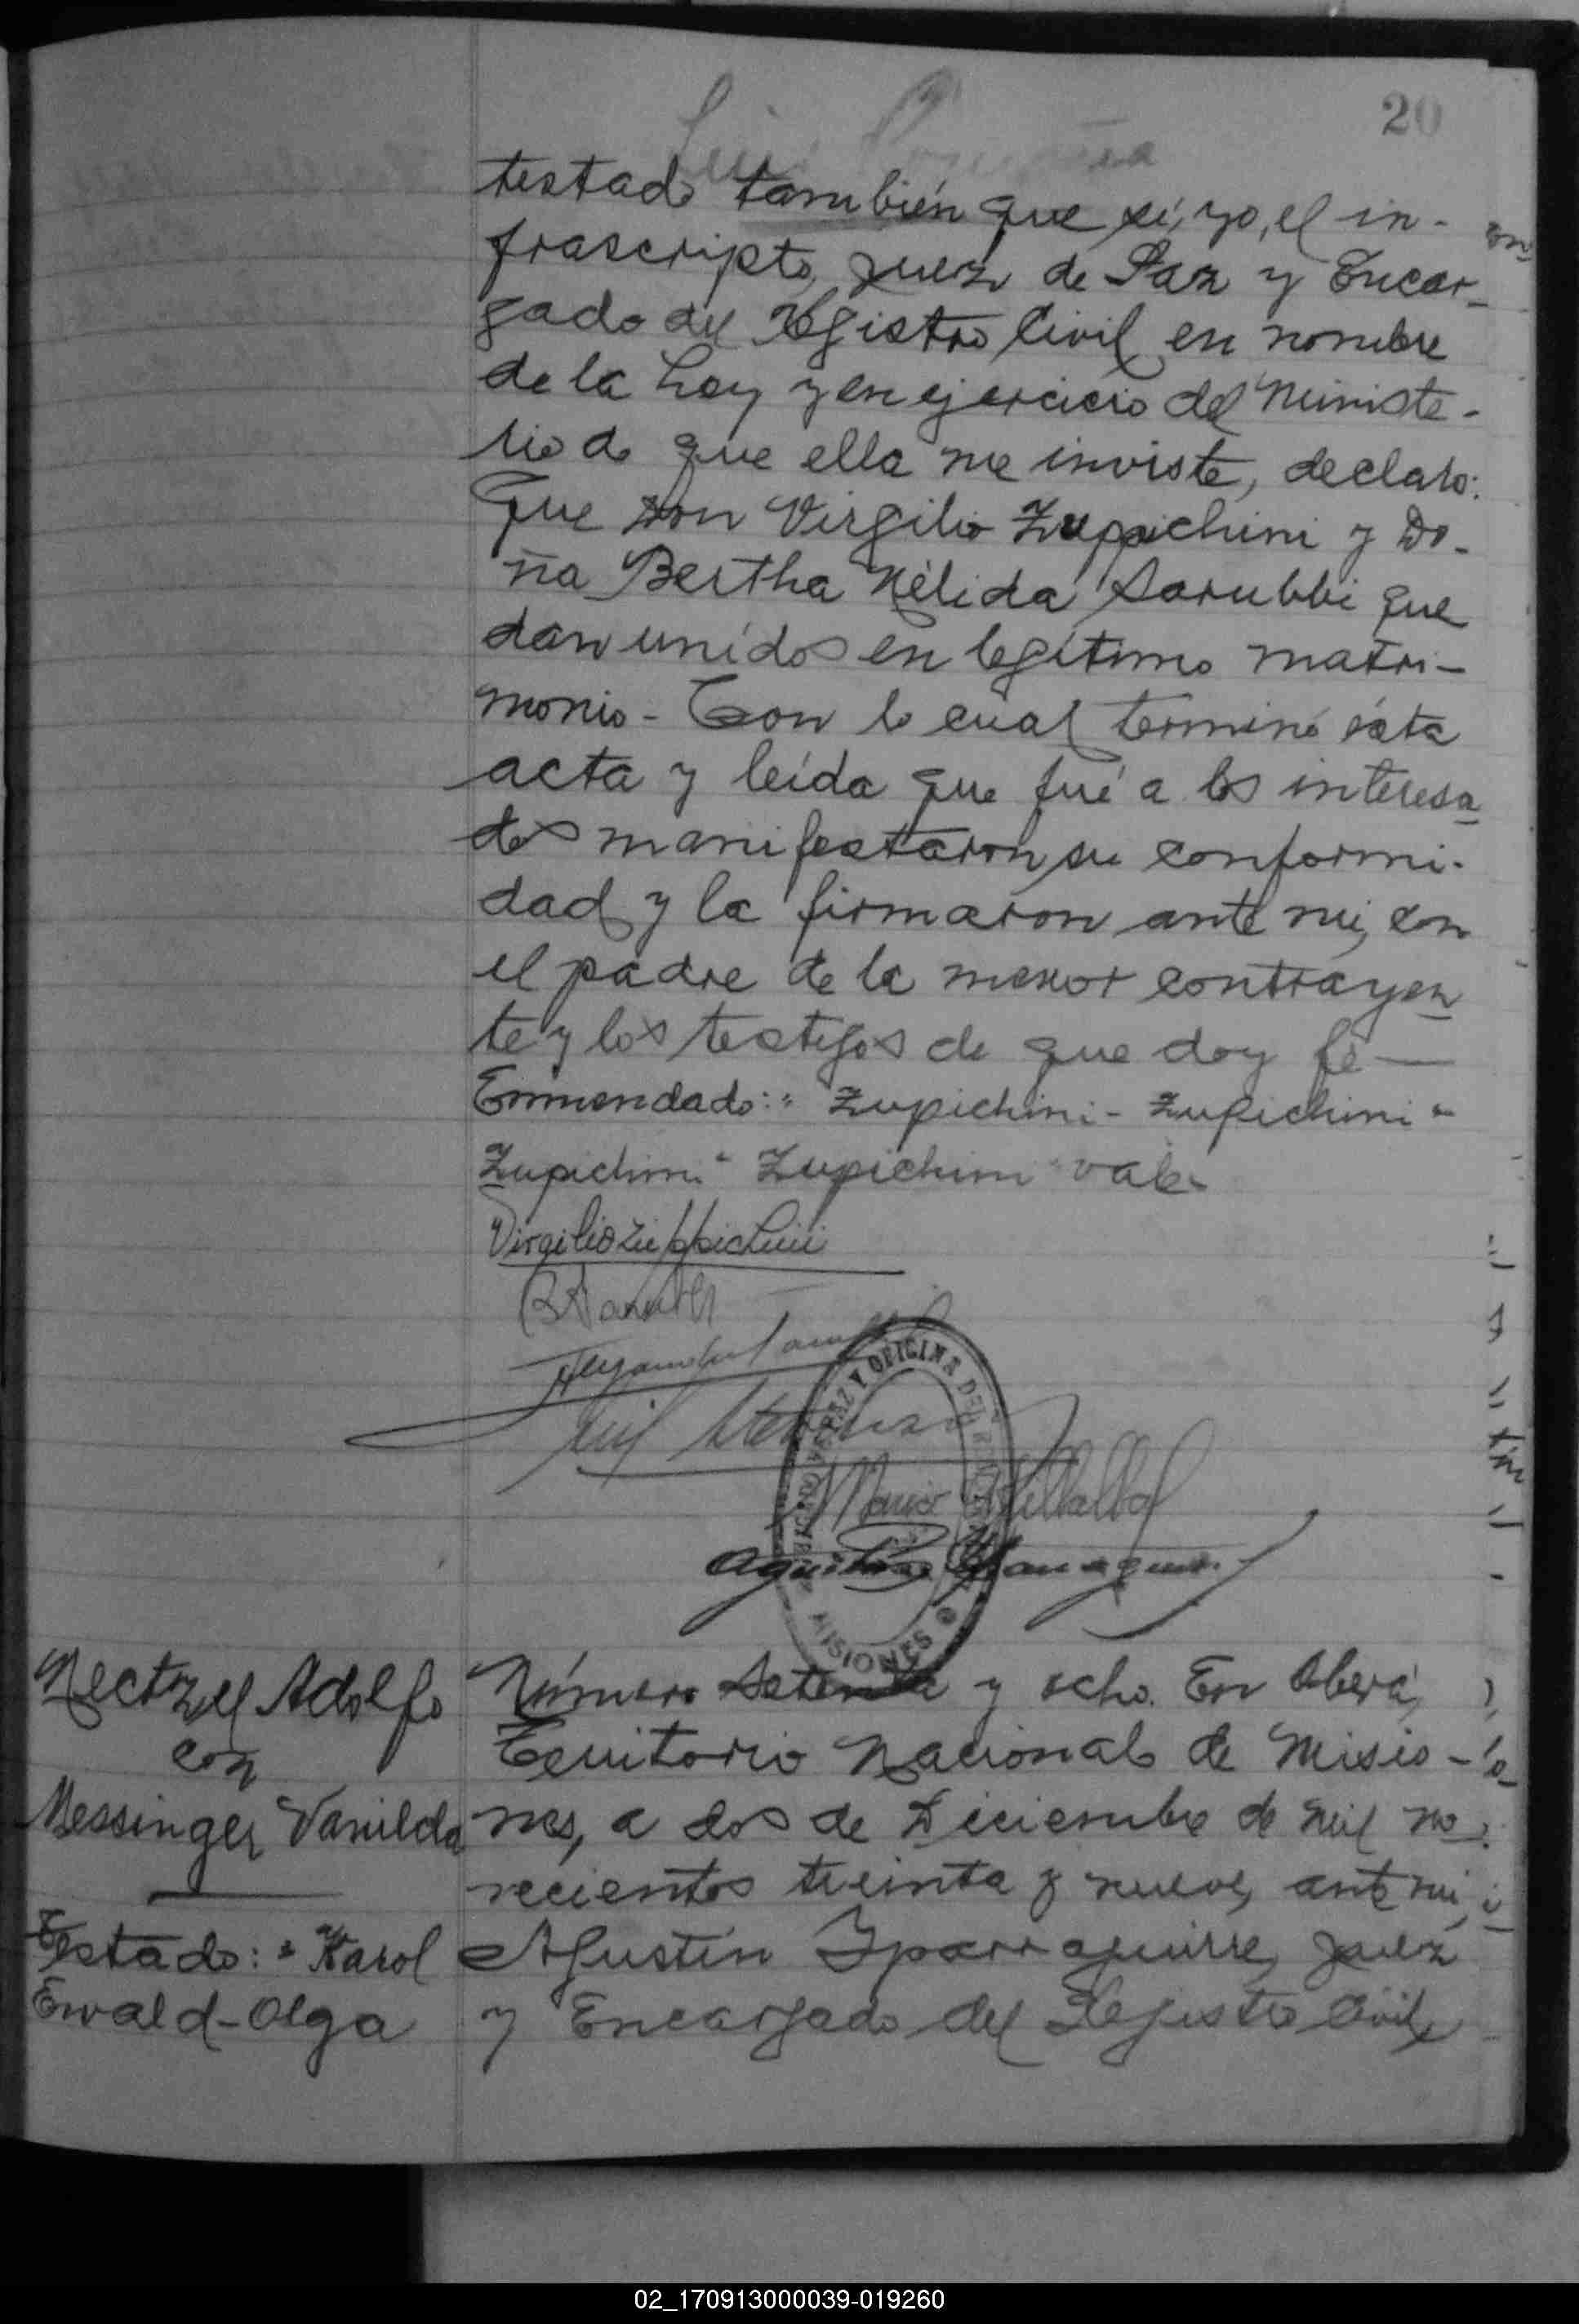 20
testado también que sí, yo, el in-
frascripto, Juez de Paz y Encar-
gado del Registro Civil en nombre
de la Ley y en ejercicio del Ministe-
rio de que ella me inviste, declaro:
Que Don Virgilio Zuppichini y Do-
ña Bertha Nélida Sarubbi que
dan unidos en legítimo matri-
monio - Con lo cual terminó ésta
acta y leída que fué a los interesa
dos manifestaron su conformi-
dad y la firmaron ante mí, con
el padre de la menor contrayen
te y los testigos de que doy fé—
Enmendado: "Zupichini - Zupichini"
Zupichini" Zupichini" vale-
Virgilio Zuppichini
PAZ Y OFICINA DEL
MISIONES
Mario Villalba
Nectzel Adolfo
con
Messinger Vanilda
Testado: "Karol
Ewald - Olga
Número Setenta y ocho. En Oberá,
Territorio Nacional de Misio-
nes, a dos de Diciembre de mil no
vecientos treinta y nueve, ante mí,
Agustín Yparraguirre, Juez
y Encargado del Registro Civil,
02_170913000039-019260